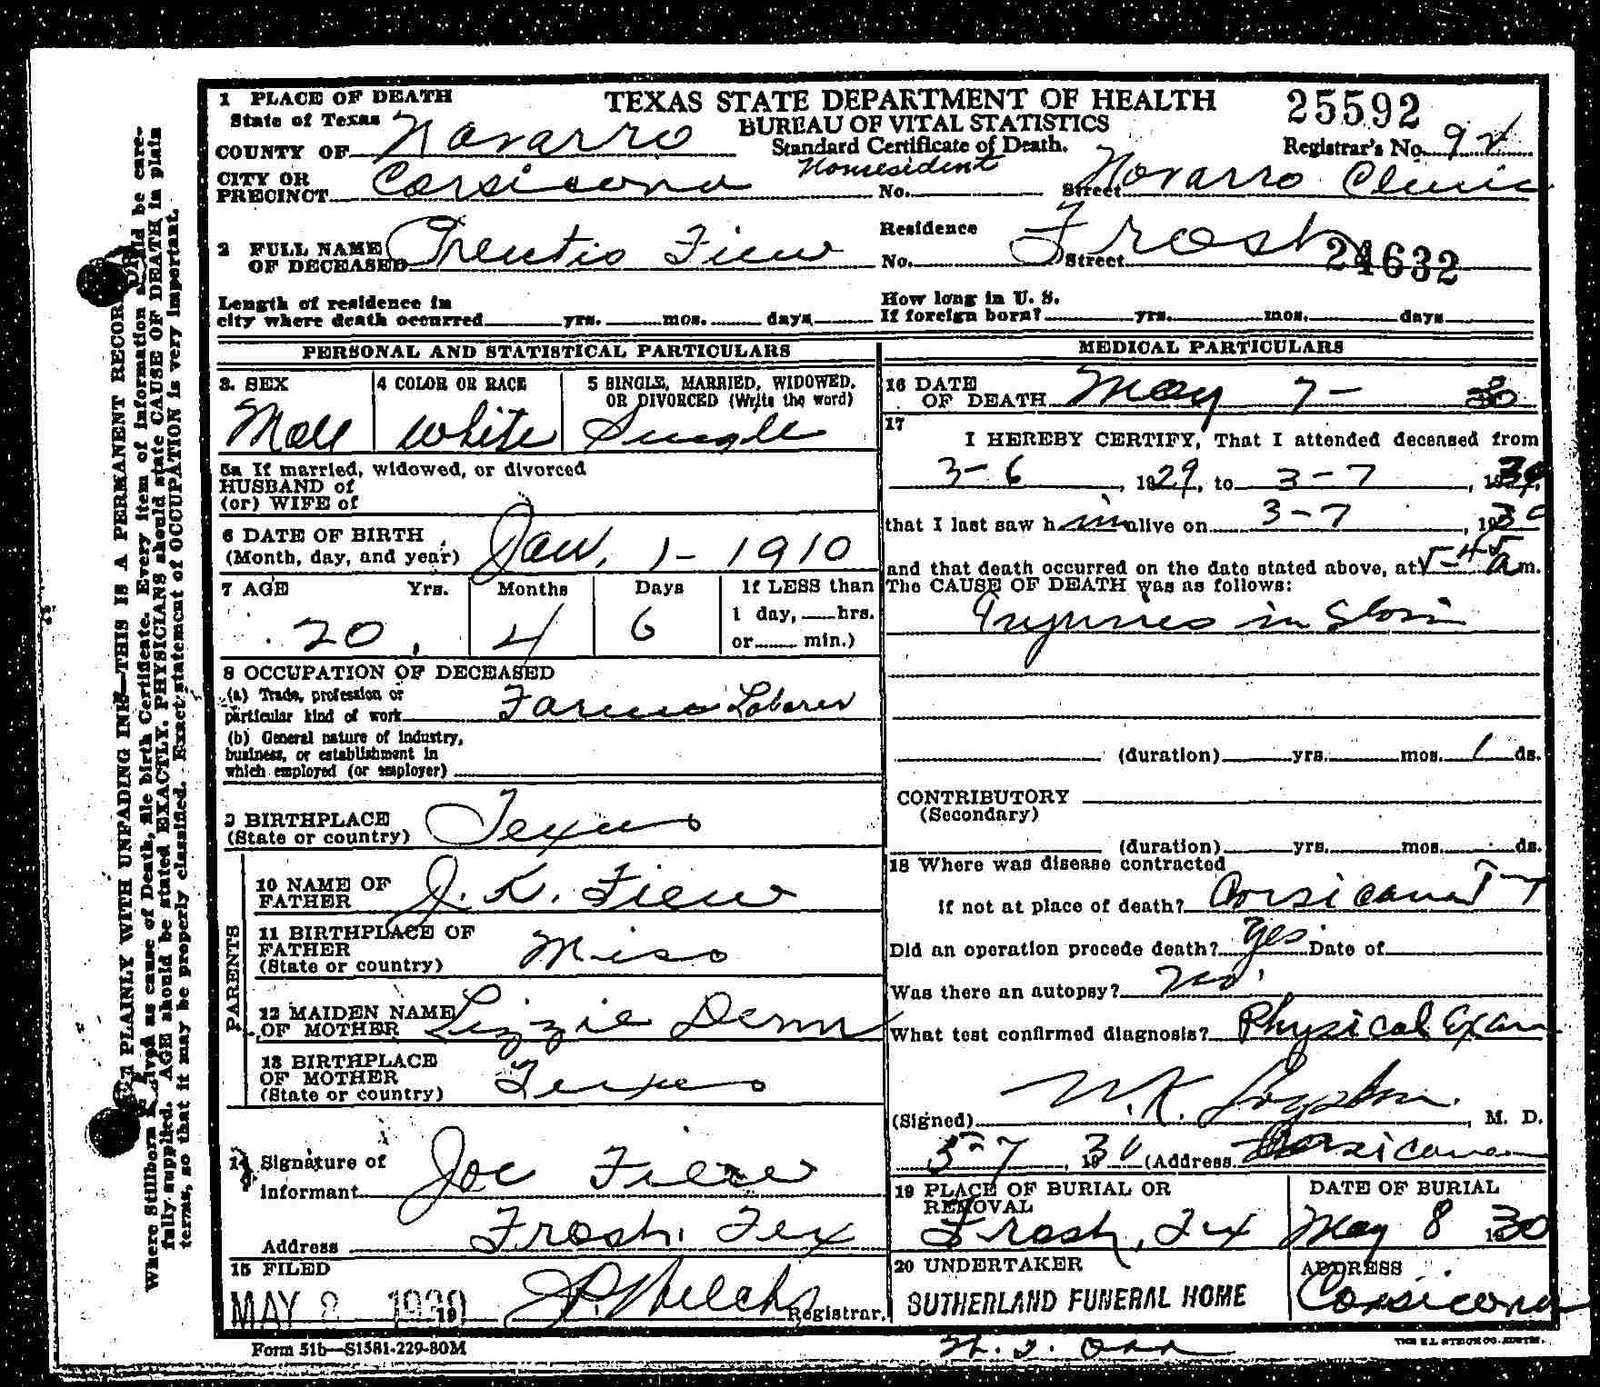 1 PLACE OF DEATH
State of Texas
COUNTY OF Navarro
CITY OR PRECINCT Corsicana
TEXAS STATE DEPARTMENT OF HEALTH
BUREAU OF VITAL STATISTICS
Standard Certificate of Death.
25592
Registrar's No.
Nonresident
No. Street Navarro Clinic
2 FULL NAME OF DECEASED Prentis Fiew
Residence
No. Street Frost
24632
Length of residence in
city where death occurred yrs. mos. days
How long in U. S.
If foreign born? yrs. mos. days
PERSONAL AND STATISTICAL PARTICULARS
3. SEX
Male
4 COLOR OR RACE
White
5 SINGLE, MARRIED, WIDOWED,
OR DIVORCED (Write the word)
Single
5a If married, widowed, or divorced
HUSBAND of
(or) WIFE of
6 DATE OF BIRTH
(Month, day, and year) Jan. 1- 1910
7 AGE Yrs. Months Days If LESS than
1 day, hrs.
or min.)
20 4 6
8 OCCUPATION OF DECEASED
(a) Trade, profession or
particular kind of work Farm Laborer
(b) General nature of industry,
business, or establishment in
which employed (or employer)
9 BIRTHPLACE
(State or country) Texas
PARENTS
10 NAME OF
FATHER J. K. Fiew
11 BIRTHPLACE OF
FATHER
(State or country) Miss
12 MAIDEN NAME
OF MOTHER Lizzie
13 BIRTHPLACE
OF MOTHER
(State or country) Texas
14 Signature of
Informant Joe Fiew
Address Frost, Tex
15 FILED
MAY 8 1930 19
J P Welch Registrar.
MEDICAL PARTICULARS
16 DATE
OF DEATH May 7- 30
17
I HEREBY CERTIFY, That I attended deceased from
3-6, 1929, to 3-7, 1930,
that I last saw him alive on 3-7, 1930
and that death occurred on the date stated above, at 5-45 a m.
The CAUSE OF DEATH was as follows:
Injuries in Storm
(duration) yrs. mos. 1 ds.
CONTRIBUTORY
(Secondary)
(duration) yrs. mos. ds.
18 Where was disease contracted
if not at place of death? Corsicana
Did an operation precede death? Yes Date of
Was there an autopsy? No
What test confirmed diagnosis? Physical Exam
(Signed) M. D.
5-7, 1930 (Address Corsicana
19 PLACE OF BURIAL OR
REMOVAL
Frost, Tex
DATE OF BURIAL
May 8 1930
20 UNDERTAKER
SUTHERLAND FUNERAL HOME
ADDRESS
Corsicana
Form 51b—S1581-229-80M
WRITE PLAINLY WITH UNFADING INK—THIS IS A PERMANENT RECORD
Where Stillborn as cause of Death, file birth Certificate. Every item of information should be care-
fully supplied. AGE should be stated EXACTLY. PHYSICIANS should state CAUSE OF DEATH in plain
terms, so that it may be properly classified. Exact statement of OCCUPATION is very important.